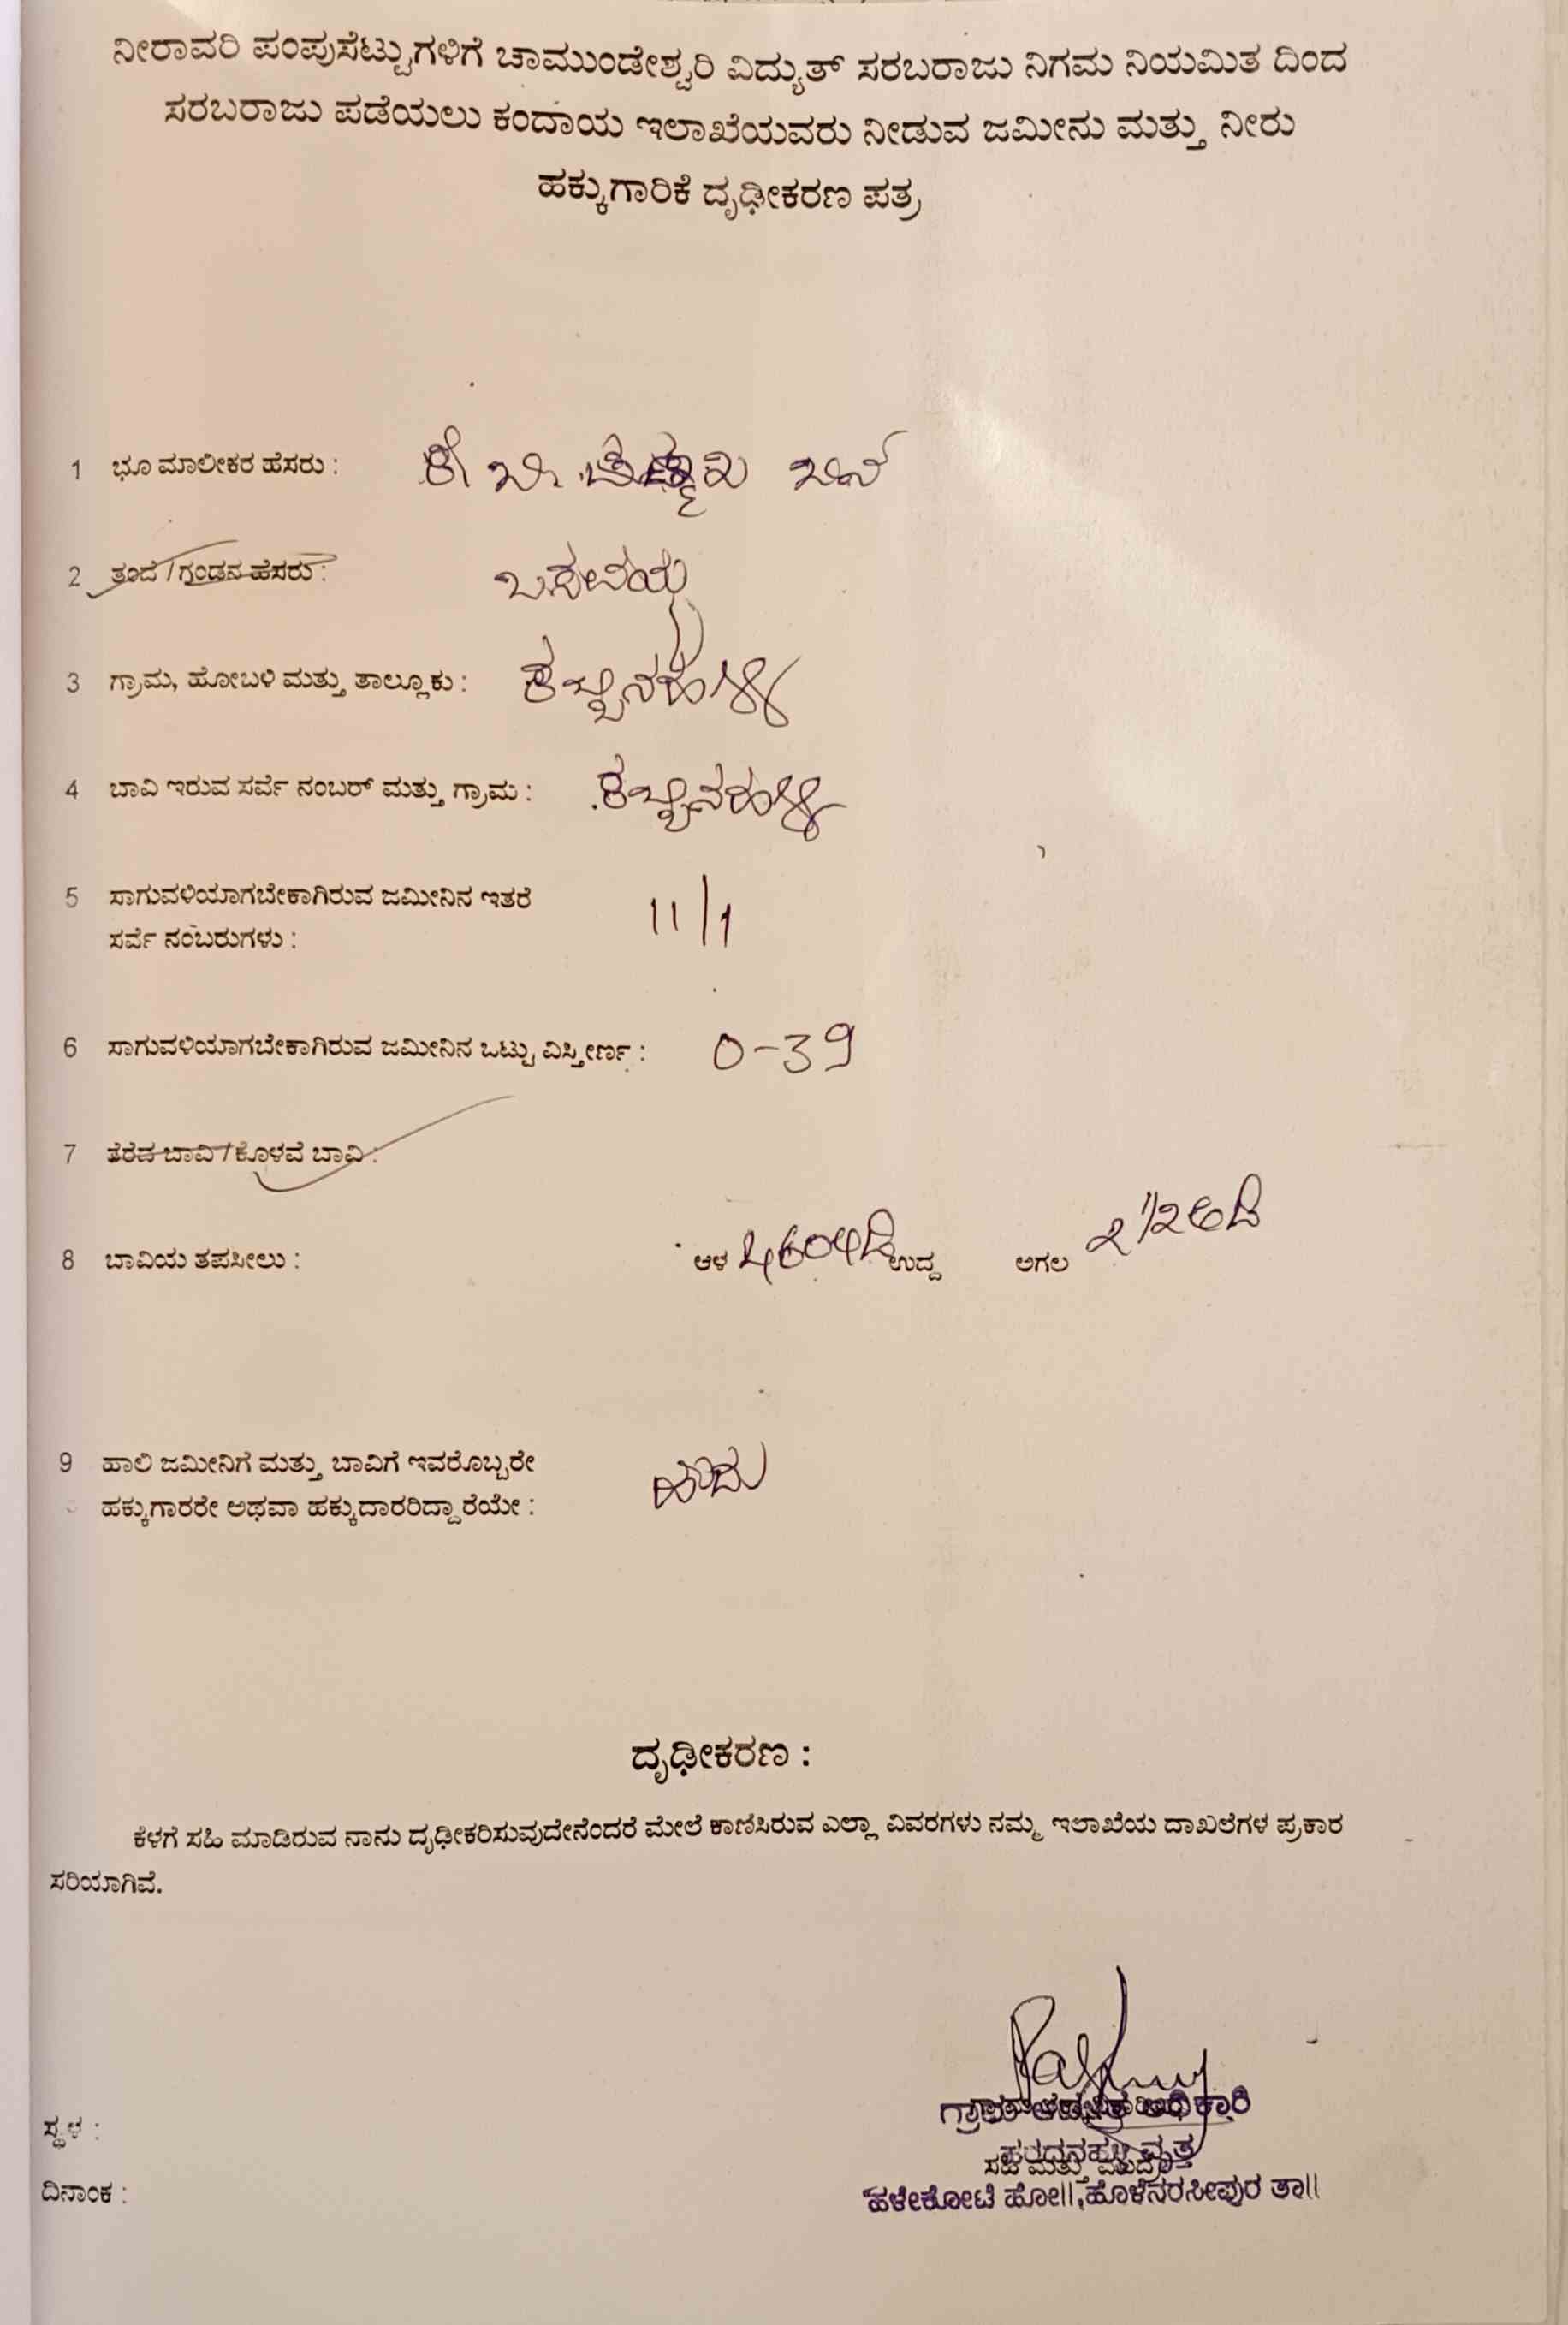 ನೀರಾವರಿ ಪಂಪುಸೆಟ್ಟುಗಳಿಗೆ ಚಾಮುಂಡೇಶ್ವರಿ ವಿದ್ಯುತ್ ಸರಬರಾಜು ನಿಗಮ ನಿಯಮಿತ ದಿಂದ
ಸರಬರಾಜು ಪಡೆಯಲು ಕಂದಾಯ ಇಲಾಖೆಯವರು ನೀಡುವ ಜಮೀನು ಮತ್ತು ನೀರು
ಹಕ್ಕುಗಾರಿಕೆ ದೃಢೀಕರಣ ಪತ್ರ
1 ಭೂ ಮಾಲೀಕರ ಹೆಸರು : ಕೆ ಬಿ ಬಿನ್
2 ತಂದೆ / ಗಂಡನ ಹೆಸರು : ಬಸವಯ್ಯ
3 ಗ್ರಾಮ, ಹೋಬಳಿ ಮತ್ತು ತಾಲ್ಲೂಕು : ಕಬ್ಬಿನಹಳ್ಳಿ
4 ಬಾವಿ ಇರುವ ಸರ್ವೆ ನಂಬರ್ ಮತ್ತು ಗ್ರಾಮ : ಕಬ್ಬಿನಹಳ್ಳಿ
5 ಸಾಗುವಳಿಯಾಗಬೇಕಾಗಿರುವ ಜಮೀನಿನ ಇತರೆ
ಸರ್ವೆ ನಂಬರುಗಳು : 11/1
6 ಸಾಗುವಳಿಯಾಗಬೇಕಾಗಿರುವ ಜಮೀನಿನ ಒಟ್ಟು ವಿಸ್ತೀರ್ಣ : 0-39
7 ತೆರೆದ ಬಾವಿ / ಕೊಳವೆ ಬಾವಿ :
8 ಬಾವಿಯ ತಪಸೀಲು : ಆಳ 460ಅಡಿ ಉದ್ದ ಅಗಲ 2 1/2 ಅಡಿ
9 ಹಾಲಿ ಜಮೀನಿಗೆ ಮತ್ತು ಬಾವಿಗೆ ಇವರೊಬ್ಬರೇ
ಹಕ್ಕುಗಾರರೇ ಅಥವಾ ಹಕ್ಕುದಾರರಿದ್ದಾರೆಯೇ : ಹೌದು
ದೃಢೀಕರಣ :
ಕೆಳಗೆ ಸಹಿ ಮಾಡಿರುವ ನಾನು ದೃಢೀಕರಿಸುವುದೇನೆಂದರೆ ಮೇಲೆ ಕಾಣಿಸಿರುವ ಎಲ್ಲಾ ವಿವರಗಳು ನಮ್ಮ ಇಲಾಖೆಯ ದಾಖಲೆಗಳ ಪ್ರಕಾರ
ಸರಿಯಾಗಿವೆ.
ಸ್ಥಳ :
ಗ್ರಾಮ ಆಡಳಿತ ಅಧಿಕಾರಿ
ವೃತ್ತ
ಸಹಿ ಮತ್ತು ಮುದ್ರೆ
ದಿನಾಂಕ :
ಹಳೇಕೋಟೆ ಹೋ||,ಹೊಳೆನರಸೀಪುರ ತಾ||